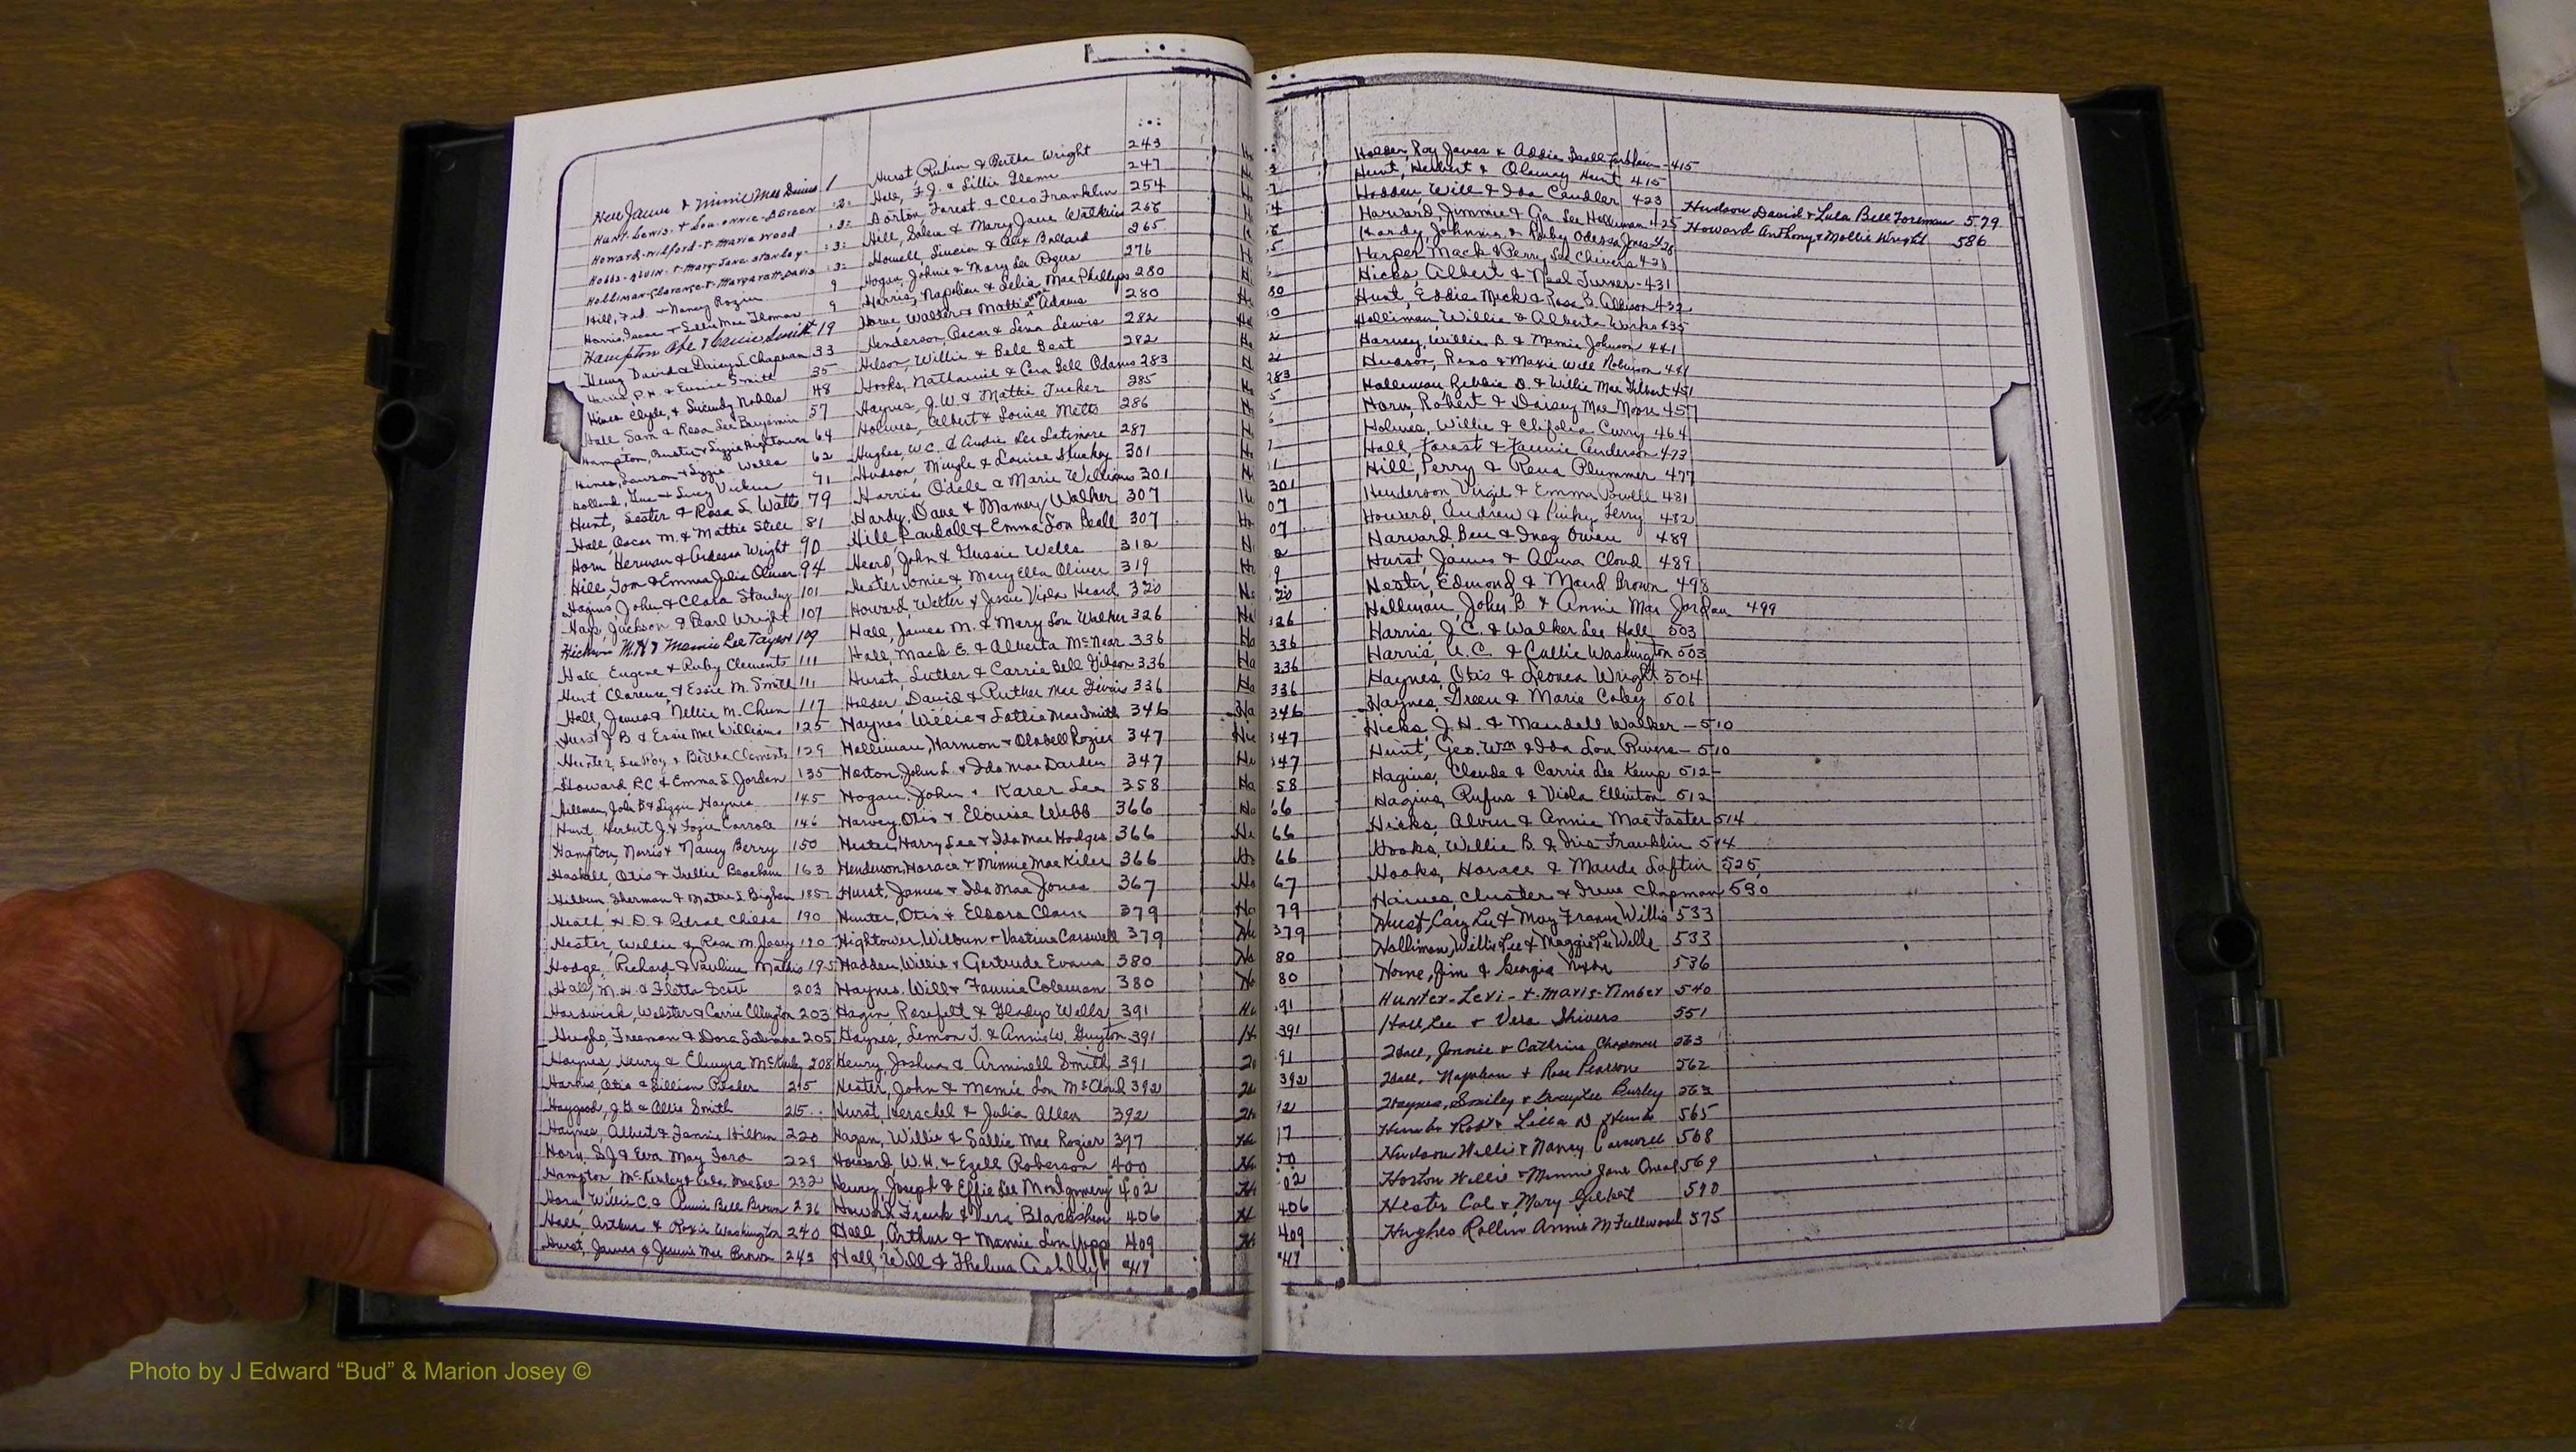 Hunt-Lewis-&-Lou-onnie-B Green :2:
Howard-Wilford-&-Maria Wood :3:
Hobbs-Alvin-&-Mary-Jane Stanley- :3:
Holliman-Clarence-&-Margaratt-Davis :3:
Hill, Fed. & Nancy Rozier 9
Harris, Isaac & Lillie Mae Thomas 9
Hampton Abe & Smith 19
Henry David & Daisy L Chapman 33
Harris, P.H. & Eunice Smith 35
Hines Clyde, & Nobles 48
Hall Sam & Rosa Lee Benjamin 57
Hampton, Buster & Lizzie Hightower 64
Hines, Lawson & Lizzie Wells 62
Holland, Gus & Lucy Vickers 71
Hunt, Lester & Rosa L. Watts 79
Hall, Oscar M. & Mattie Stell 81
Horn Herman & Ardessa Wright 90
Hill, Tom & Emma Julia Oliver 94
Hagins, John & Clara Stanley 101
Hays, Jackson & Pearl Wright 107
Hickson M.H & Mamie Lee Taylor 109
Hall, Eugene & Ruby Clements 111
Hunt Clarence, & Essie M. Smith 111
Hall, James & Nellie M. Chum 117
Hurst J B & Essie Mae Williams 125
Hunter, Lee Roy & Bertha Clements 129
Howard, R.C & Emma L Jordan 135
John B & Lizzie Haynes 145
Hunt, Herbert J. & Carroll 146
Hampton, Norris & Nancy Berry 150
Haskell, Otis & Trellie Beacham 163
Hilbun, Sherman & Mattie L Bigham 185
Heath, N.D. & Petral Childs 190
Hester, Willie & Rosa M. Josey 190
Hodge, Richard & Pauline Mathis 195
Hall, M.H. & Fletta Scott 203
Hardwick, Webster & Carrie Ellington 203
Hughs, Freeman & Dora Latimore 205
Haynes, Henry & 208
Harris, Otis & Lillian 215
Haygood, J.G. & Ollie Smith 215
Haynes, Albert & Fannie Hilbun 220
Horn, S.J & Eva May Ford 229
Hampton McKinley & Lee 232
Horn, Willie C. & Annie Bell Brown 236
Hall, Arthur & Roxie Washington 240
Hurst, James & Jennie Mae Brown 243
Hurst, Rubin & Bertha Wright 243
Hall, F.J. & Lillie Glenn 247
Horton, Forest & Cleo Franklin 254
Hill, Salem & Mary Jane Watkins 256
Howell, Lucia & Alex Ballard 265
Hogan, Johnie & Mary Lee Rogers 276
Harris, Napolian & Lelia Mae Phillips 280
Horne, Walter & Mattie Mae Adams 280
Henderson, Oscar & Lena Lewis 282
Hilson, Willie & Bell Best 282
Hooks, Nathaniel & Cora Bell Odams 283
Haynes, J.W. & Mattie Tucker 285
Holmes, Albert & Louise Metts 286
Hughes, W.C. & Audie Lee Latimore 287
Hudson, Mingle & Louise Stuckey 301
Harris, Odell & Marie Williams 301
Hardy, Dave & Mamey Walker 307
Hill Randall & Emma Lou Beall 307
Heard, John & Gussie Wells 312
Hester Tomie & Mary Ella Oliver 319
Howard, Walter & Jessie Viola Heard 320
Hall, James M. & Mary Lou Walker 326
Hall, Mack E. & Alberta McNear 336
Hurst, Luther & Carrie Bell Gibson 336
Holder, David & Ruther Mae 336
Haynes Willie & Lottie Mae Smith 346
Holliman, Harmon & Olabell Rozier 347
Horton, John L. & Ida Mae Darden 347
Hogan, John & Karer Lee 358
Harvey, Otis & Elouise Webb 366
Hester, Harry Lee & Ida Mae Hodges 366
Henderson, Horace & Minnie Mae Kiler 366
Hurst, James & Ida Mae Jones 367
Hunter, Otis & Eldora Clark 379
Hightower, Wilbun & Vastina Carswell 379
Hadden, Willie & Gertrude Evans 380
Haynes, Will & Fannie Coleman 380
Hagin, Rosefelt & Gladys Wells 391
Haynes, Lemon T. & Annie W. Guyton 391
Henry, Joshua & Arminell Smith 391
Hester, John & Mamie Lou McCloud 392
Hurst, Herschel & Julia Allen 392
Hagan, Willie & Sallie Mae Rozier 397
Howard, W.H. & Ezell Roberson 400
Henry, Joseph & Effie Lee Montgomery 402
Howard, Frank & Vera Blackshear 406
Hall, Arthur & Mamie Lou 409
Hall, Will & Thelma Ashley 411
Holder, Roy James & Addie Beall 415
Hunt, Herbert & Olamay Hunt 415
Hadden, Will & Ida Candler 423
Harvard, Jimmie & Ga. Lee Holliman 425
Hardy, Johnnie & Ruby Odessa Jones 428
Harper Mack & Perry Lee Chivers 428
Hicks, Albert & Neal Turner-431
Hunt, Eddie Mack & Rosa B. Allison 432
Holliman, Willie & Alberta Works 435
Harvey, Willie B & Mamie Johnson 441
Hudson, Reno & Maxie Will Robinson 441
Holliman Zebbie D. & Willie Mae Gilbert 451
Horn, Robert & Daisey Mae Moore 457
Holmes, Willie & Clifolia Curry 464
Hall, Forest & Fannie Anderson 473
Hill, Perry & Rena Plummer 477
Henderson Virgil & Emma Powell 481
Howard, Andrew & Pinky Terry 482
Harvard, Ben & Inez Owen 489
Hurst, James & Alma Cloud 489
Hester, Edmond & Maud Brown 498
Holliman, John B. & Annie Mae Jordan 499
Harris, J.C. & Walker Lee Hall 503
Harris, A.C. & Callie Washington 503
Haynes, Otis & Leonea Wright 504
Haynes, Green & Marie Coley 506
Hicks, J.H. & Mandell Walker - 510
Hunt, Geo. Wm & Ida Lou Rivers - 510
Hagins, Claude & Carrie Lee Kemp 512
Hagins, Rufus & Viola Ellinton 512
Hicks, Alvin & Annie Mae Foster 514
Hooks, Willie B. & Iris Franklin 514
Hooks, Horace & Maude Loftin 525
Haines, Chester & Irene Chapman 530
Hurst, Cary Lee & May Frances Willis 533
Holliman, Willie Lee & Maggie Lee Wells 533
Horne, Jim & Georgia Nixon 536
Hunter-Levi-&-Marie-Timber 540
Hall, Lee & Vera Shivers 551
Hall, Jonnie & Cathrine Chapman 563
Hall, Napoleon & Rose Pearson 562
Haynes, Smiley & Burley 563
Robt & Lilla D 565
Hudson Willie & Nancy Carswell 568
Horton Willie & Minnie Jane Oneal 569
Hester Cal & Mary Gilbert 570
Hughes Rollin Annie M Fullwood 575
Hudson David & Lula Bell Foreman 579
Howard Anthony & Mollie Wright 586
Photo by J Edward “Bud” & Marion Josey ©